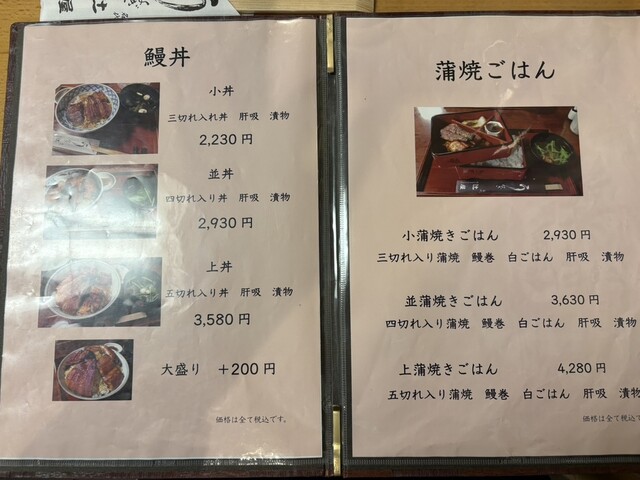 鰻丼
小丼
三切れ入れ丼　肝吸　漬物
2,230 円
並丼
四切れ入り丼　肝吸　漬物
2,930 円
上丼
五切れ入り丼　肝吸　漬物
3,580 円
大盛り　+200 円
価格は全て税込です。
蒲焼ごはん
小蒲焼きごはん　2,930 円
三切れ入り蒲焼　鰻巻　白ごはん　肝吸　漬物
並蒲焼きごはん　3,630 円
四切れ入り蒲焼　鰻巻　白ごはん　肝吸　漬物
上蒲焼きごはん　4,280 円
五切れ入り蒲焼　鰻巻　白ごはん　肝吸　漬物
価格は全て税込で